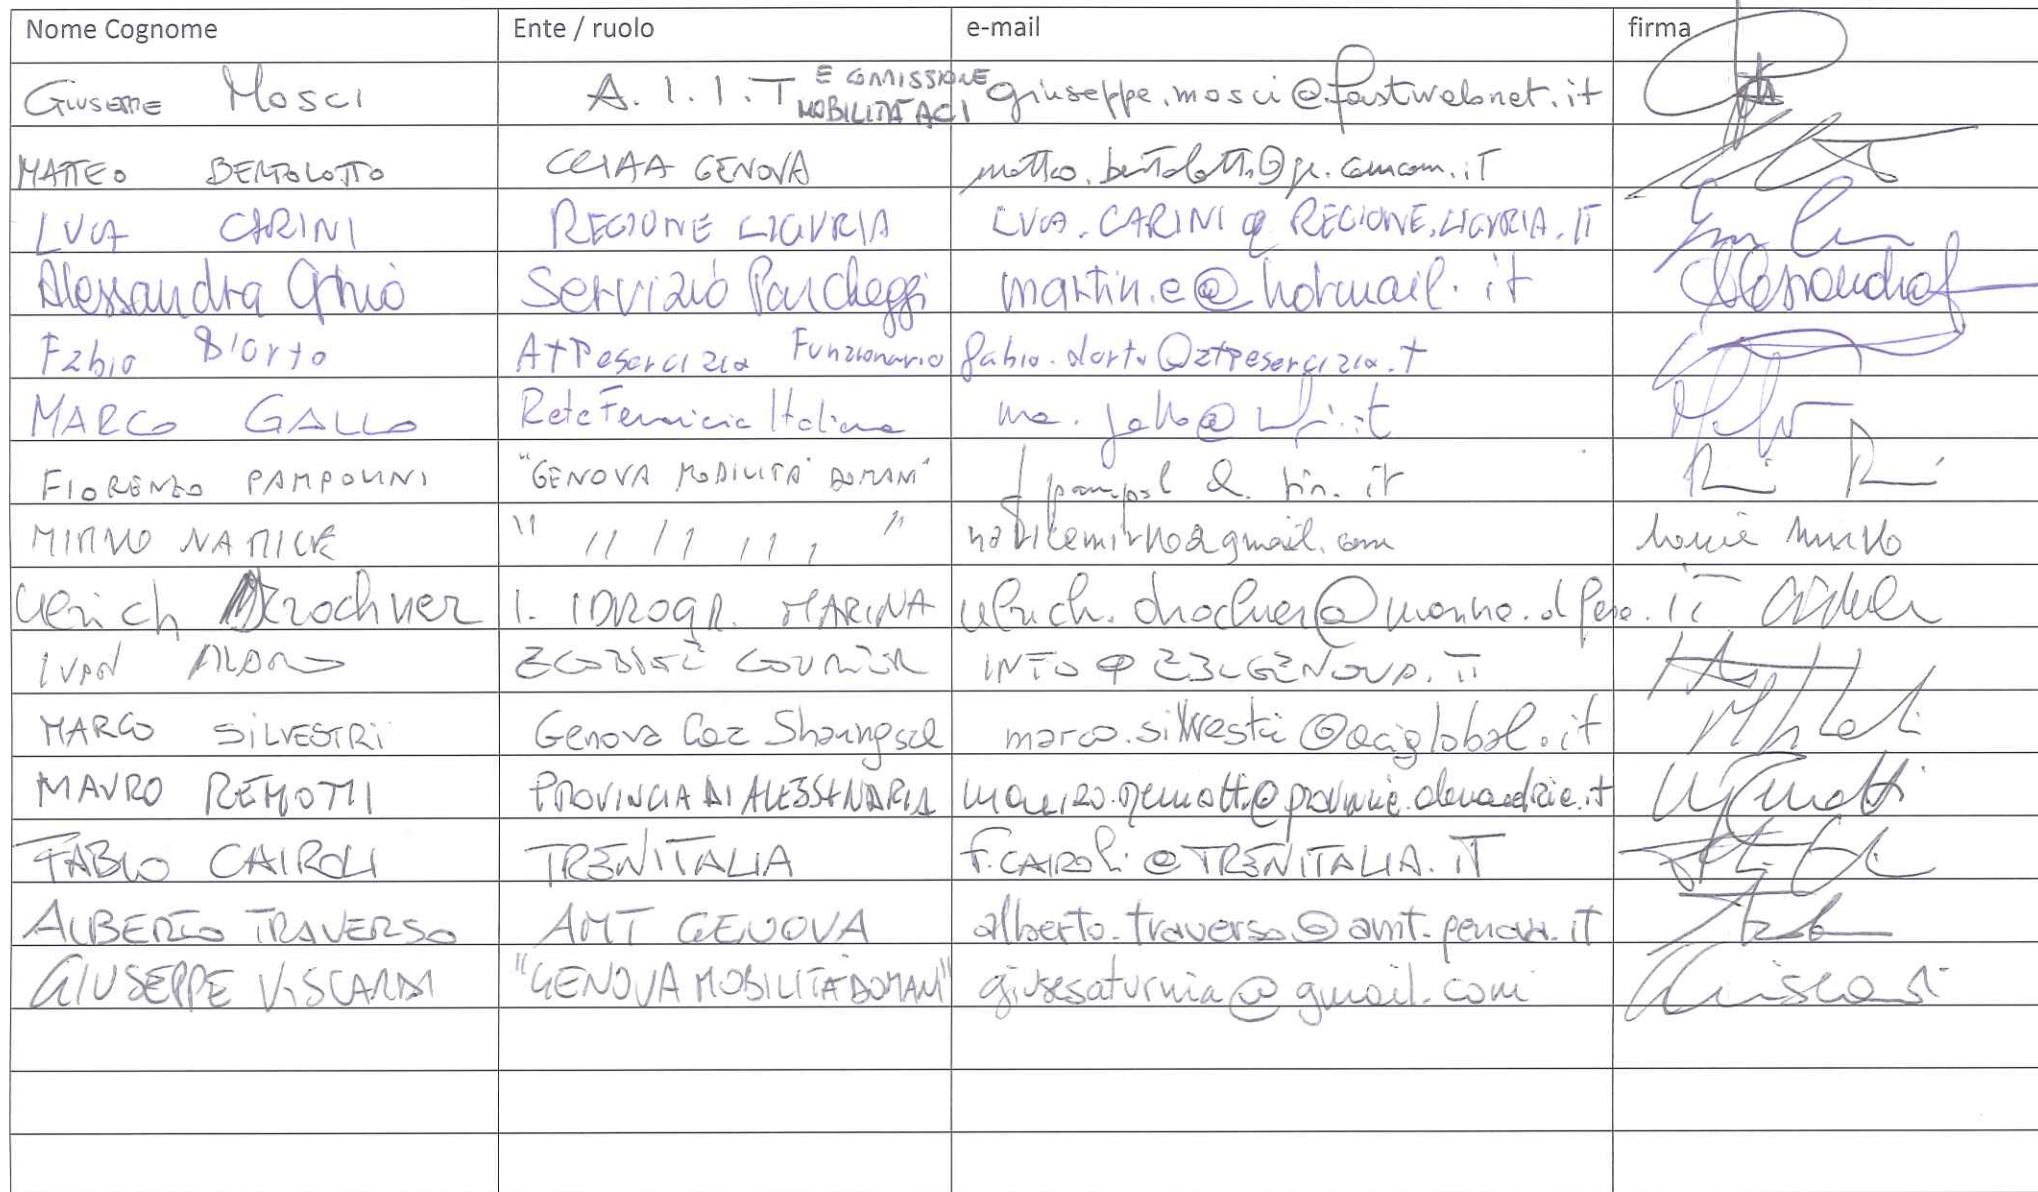 Nome Cognome Ente / ruolo e-mail firma
Giuseppe Mosci A. I. I. T E COMMISSIONE MOBILITÀ ACI giuseppe.mosci@fastwebnet.it
MATTEO BERTOLOTTO CCIAA GENOVA matteo.bertolotto@ge.camcom.it
LUCA CARINI REGIONE LIGURIA LUCA.CARINI@REGIONE.LIGURIA.IT
Alessandra Ghió Servizió Parcheggi martin.e@hotmail.it Alessandra
Fabio D'Orto ATPesercizio Funzionario fabio.dorto@atpesercizio.it
MARCO GALLO Rete Ferroviaria Italiana ma.gallo@rfi.it
FIORENZO PAMPOLINI "GENOVA MOBILITÀ DOMANI" fpampol@tin.it
MIRNO NATICE " " " " "
Ulrich Drochner I. IDROGR. MARINA ulrich.drochner@marina.difesa.it
IVAN ECOBIKE COURIER INFO@EBCGENOVA.IT
MARCO SILVESTRI Genova Car Sharing marco.silvestri@aciglobal.it
MAURO REMOTTI PROVINCIA DI ALESSANDRIA mauro.remotti@provincia.alessandria.it
FABIO CAIROLI TRENITALIA F.CAIROLI@TRENITALIA.IT
ALBERTO TRAVERSO AMT GENOVA alberto.traverso@amt.genova.it
GIUSEPPE VISCARDI "GENOVA MOBILITÀ DOMANI" giusesaturnia@gmail.com Viscardi